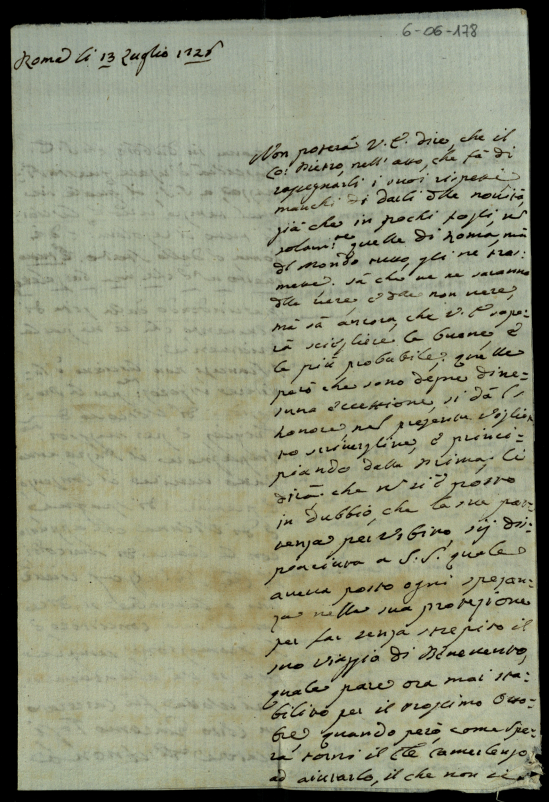 6-06-178
Roma li 13 Luglio 1726
Non poterà V. E. dire, che il
Co: Pietro, nell'atto, che fà di
rassegnarli i suoi rispetti
manchi di darli delle novità,
già che in pochi fogli, nò
solam.te quelle di Roma, mà
del Mondo tutto, gli ne tras-
mette. sà che ve ne saranno
delle vere, e delle non vere,
mà sà ancora, che V. E. sapo-
rà sciegliere le buone, e
le più probabile; quelle
però che sono degne di ne-
suna eccessione, si dà l'
honore nel presente foglie-
to scrivergline, e princi-
piando dalla prima, li
dirà che nò si è posto
in dubbio, che la sua par-
tenza per Urbino, sij dis-
piaciuta a S. S. quale
aveva posto ogni speran-
za nella sua protezione
per far senza strepito il
suo viaggio di Benevento,
quale pare ora mai sta-
bilito per il prossimo Otto-
bre, quando però, come spe-
ra torni il Camerlengo
ad aiutarlo, il che non si